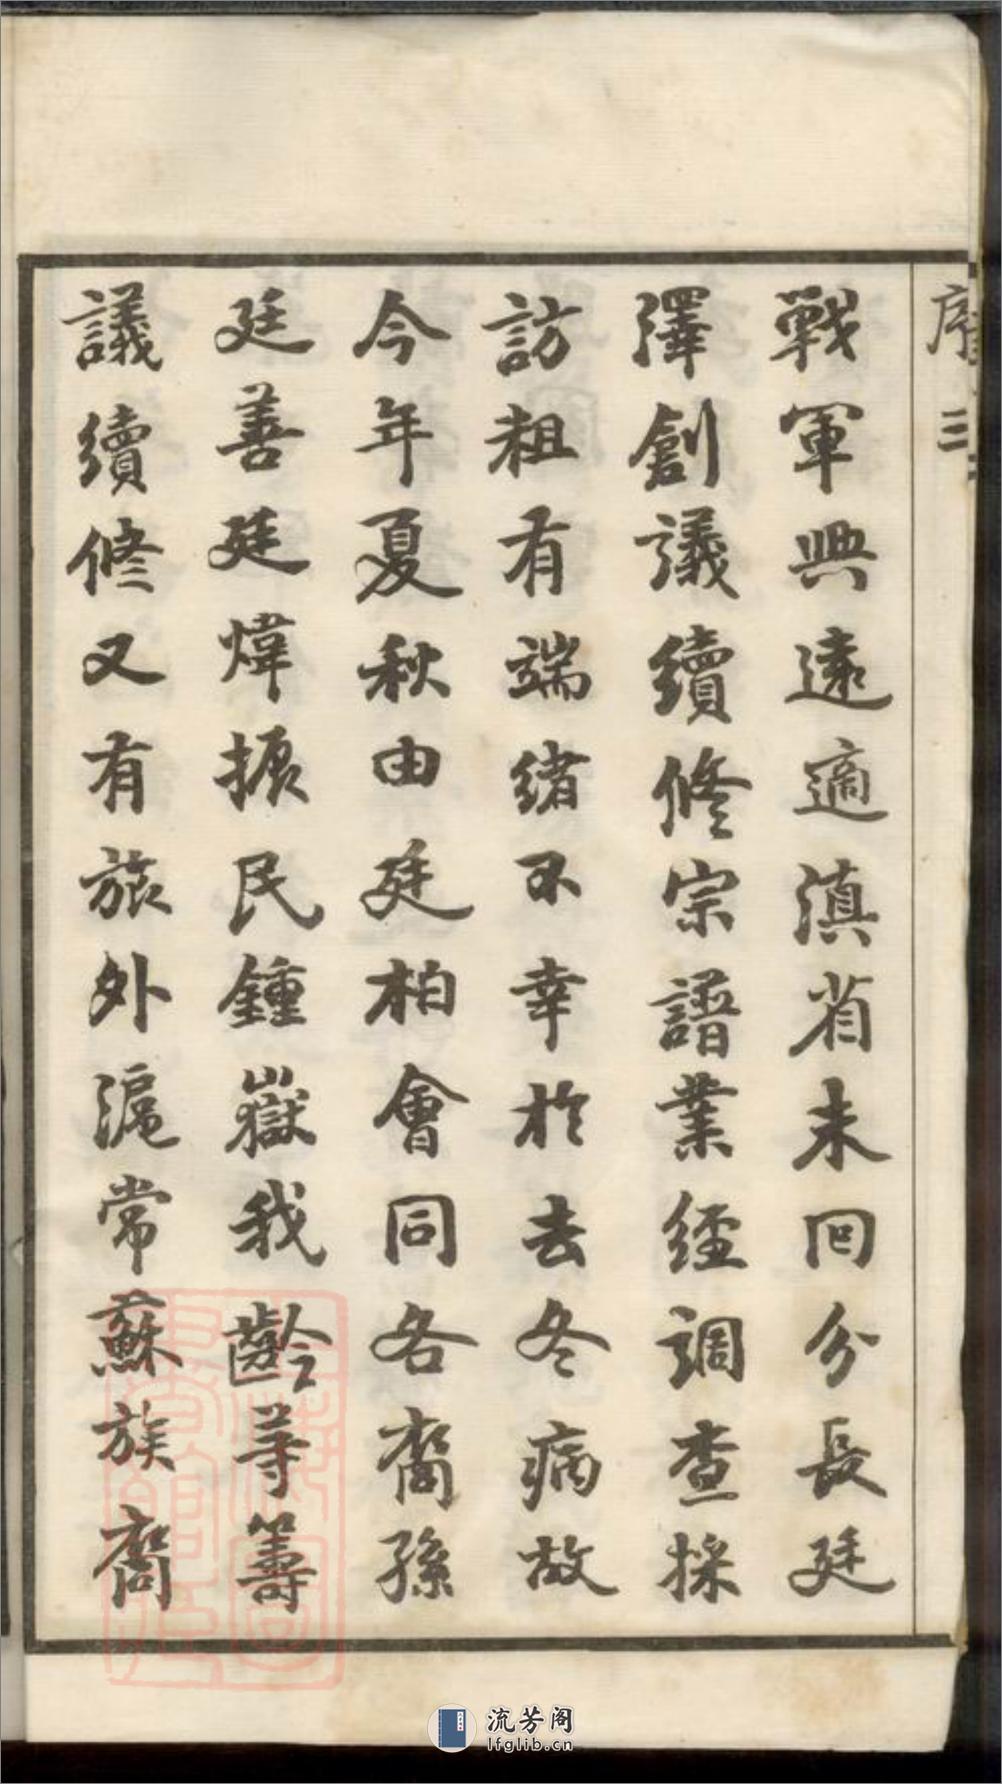 序 三
戰軍興遠適滇省未回分長廷
澤創議續修宗譜業經調查採
訪祖有端緒不幸於去冬病故
今年夏秋由廷柏會同各裔孫
廷善廷煒振民鍾嶽我齡等籌
議續修又有旅外滬常蘇族裔
流芳阁
lfglib.cn